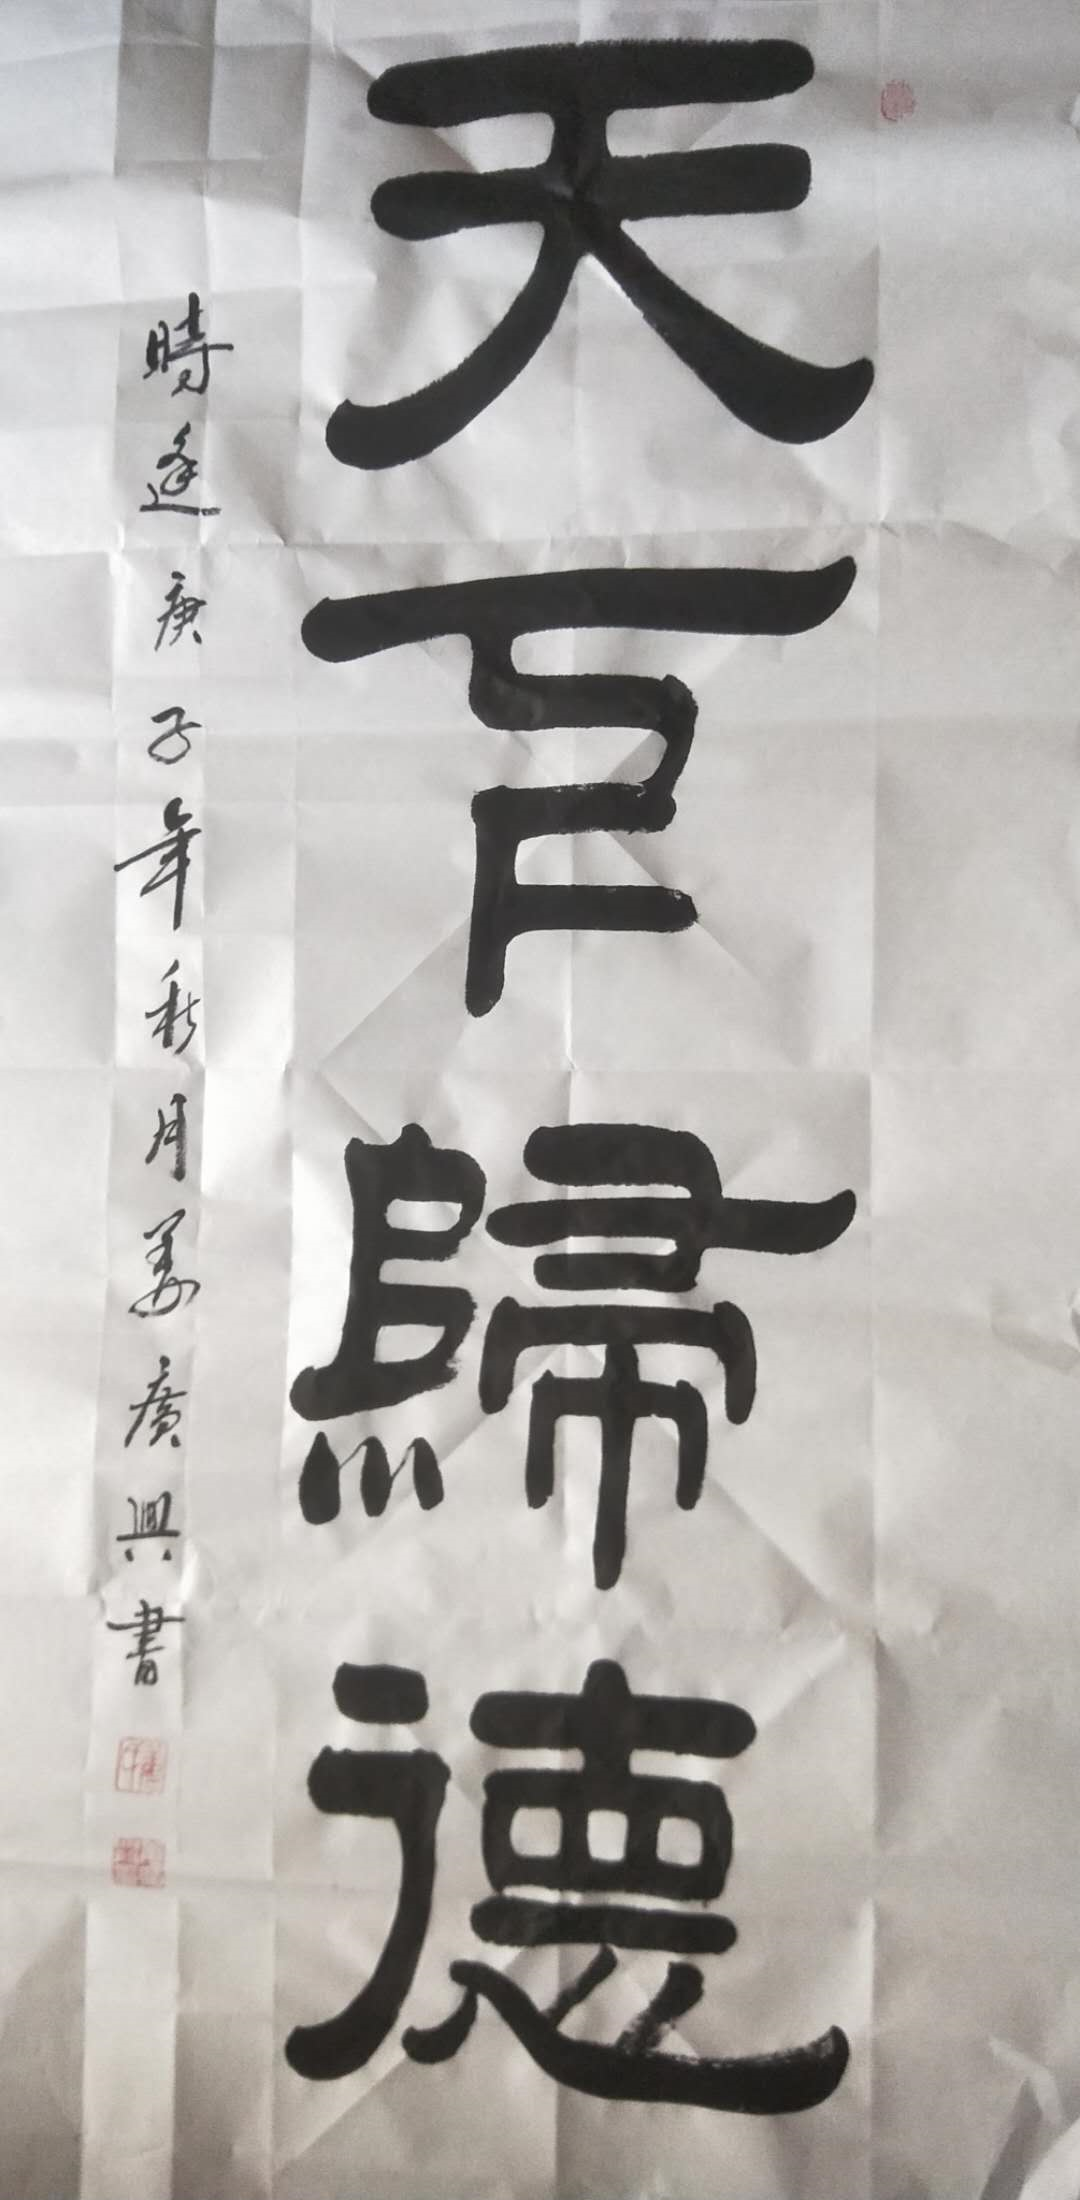 天下歸德
時逢庚子年秋月姜廣興書